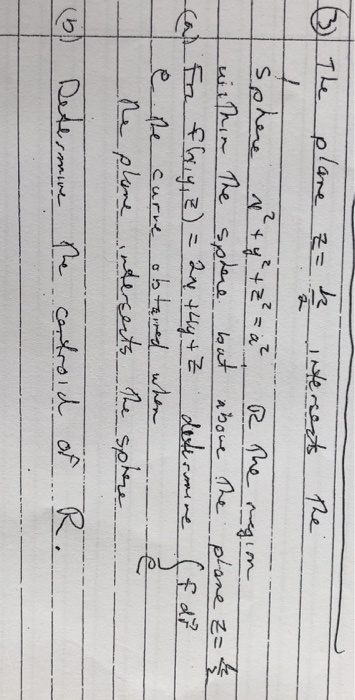 ③ The plane z = a/2 intersects the
sphere x² + y² + z² = a². R the region
within the sphere but above the plane z = a/2
(a) For f(x,y,z) = 2x + 4y + z determine ∫ f dr
C
C the curve obtained when
the plane intersects the sphere
(b) Determine the centroid of R.